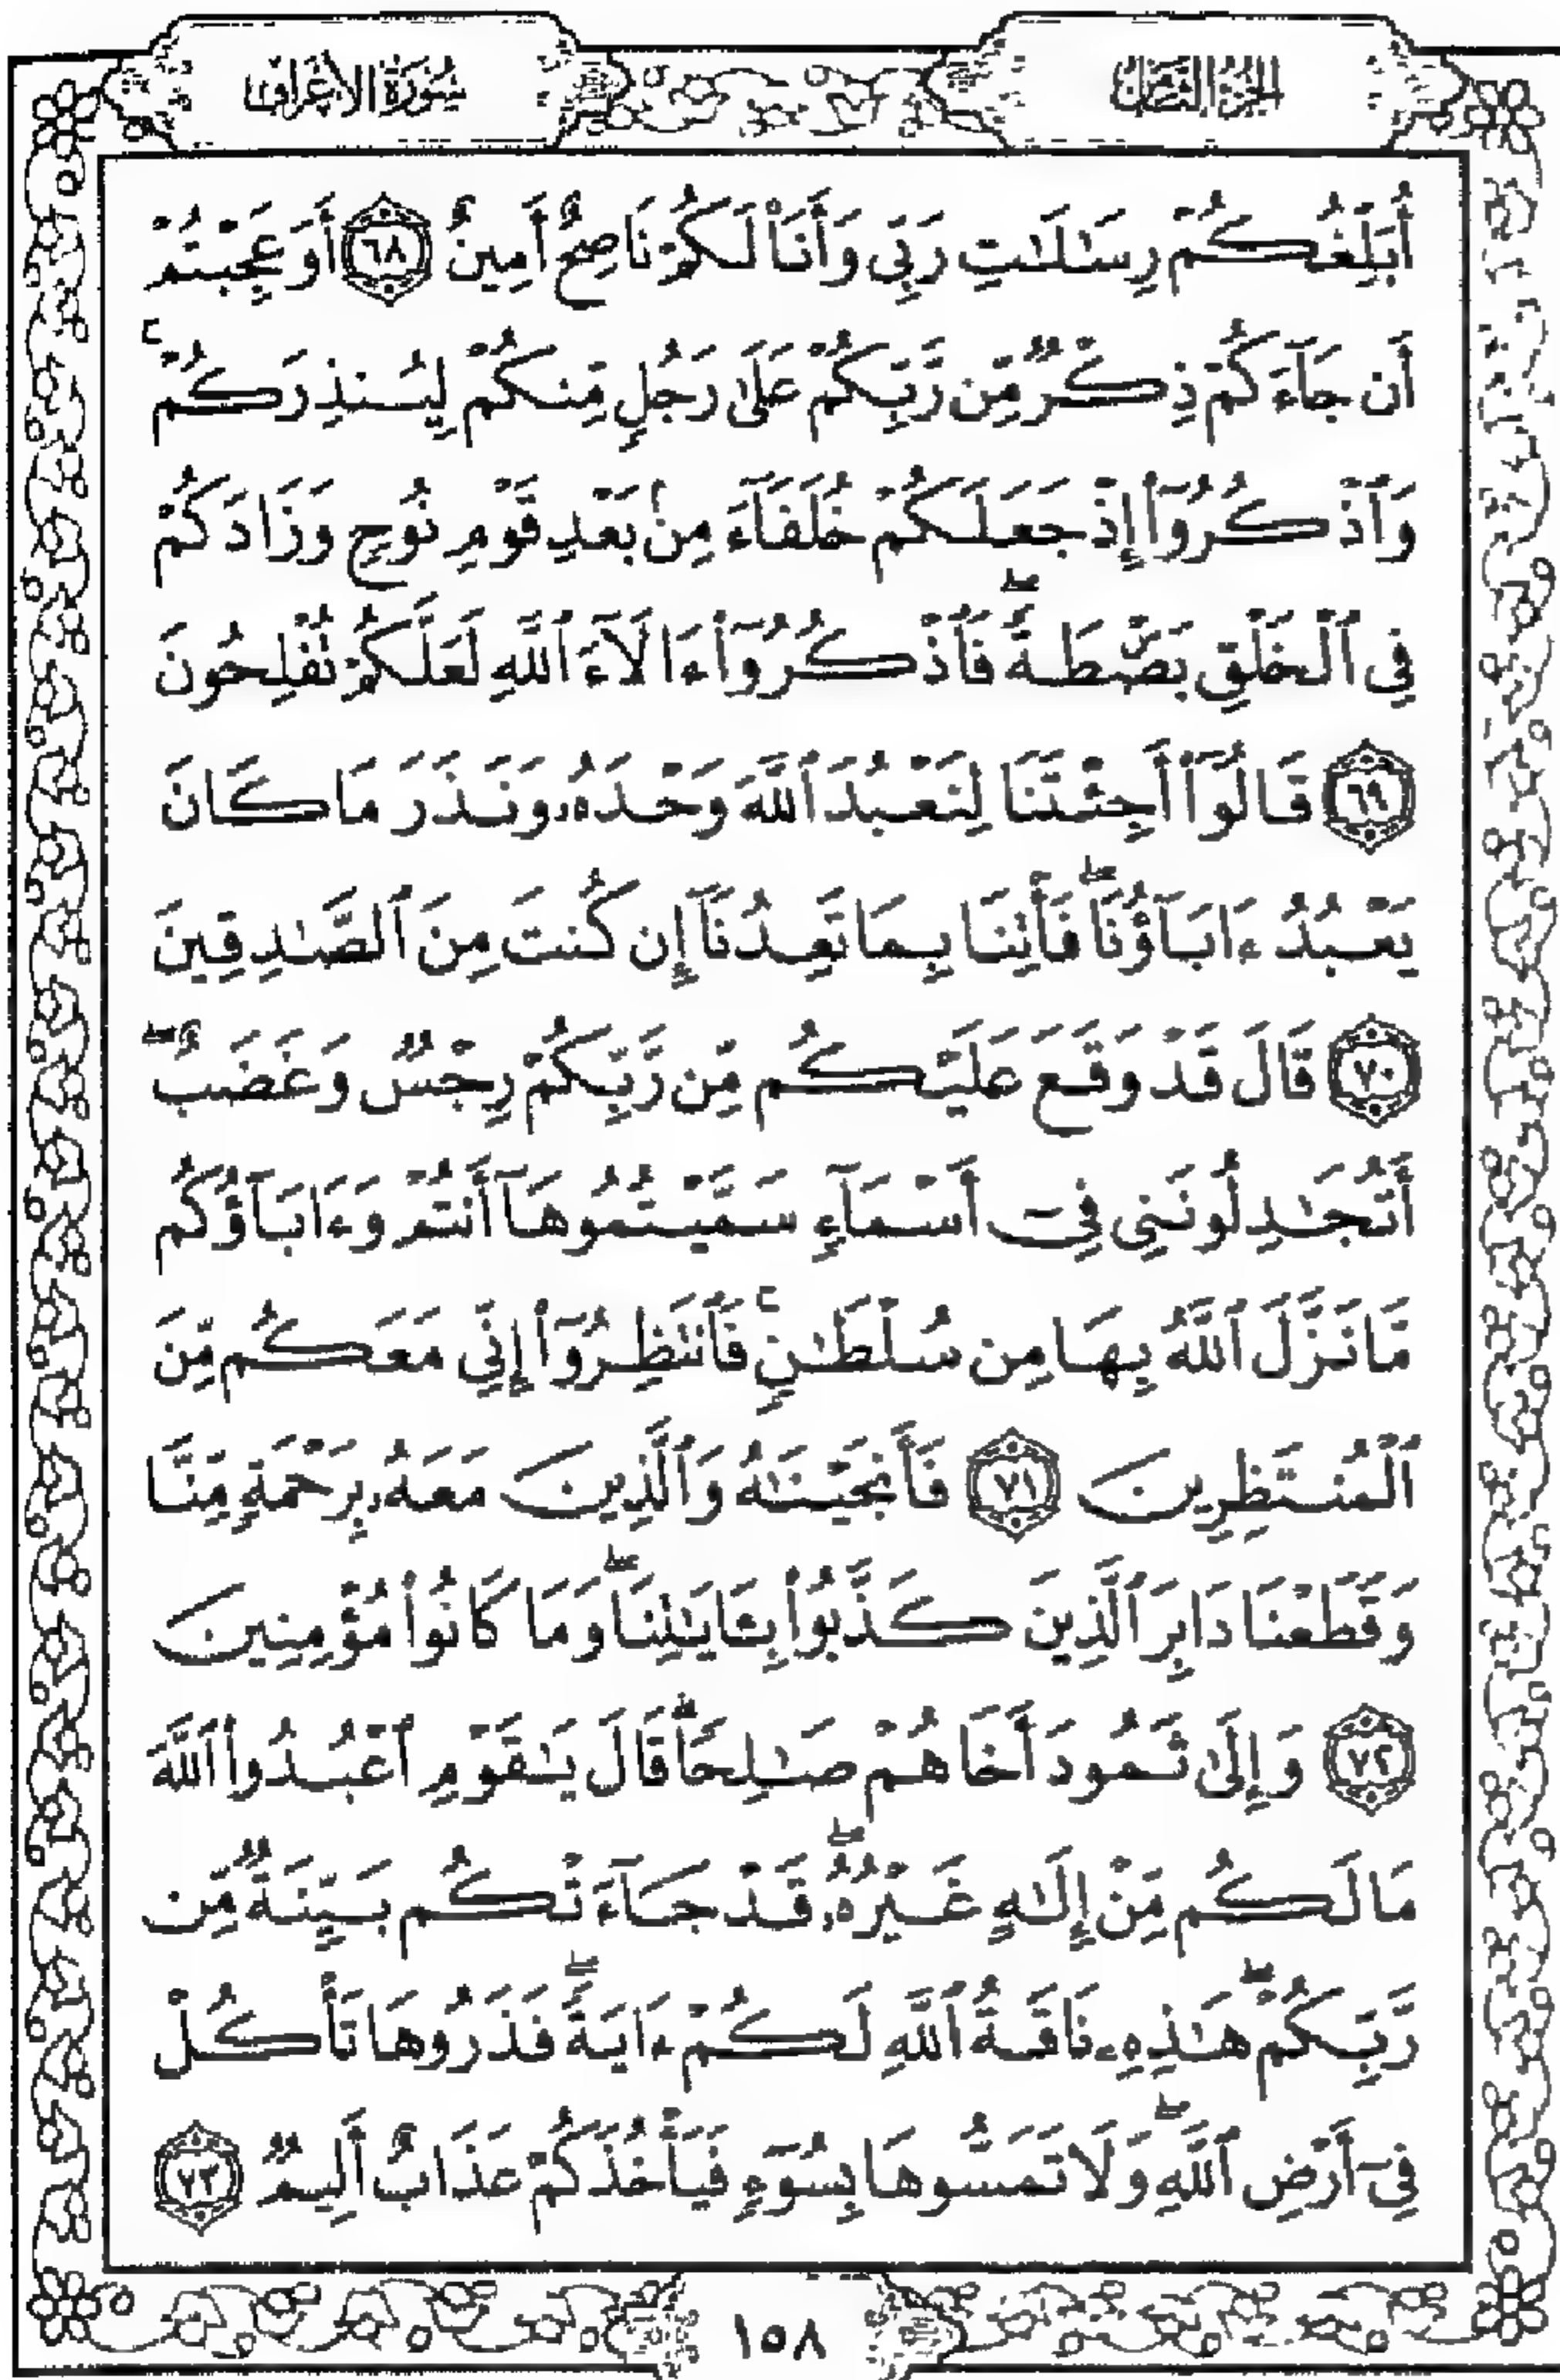 الجزء الثامن
سورة الأعراف
أُبَلِّغُكُمْ رِسَٰلَٰتِ رَبِّى وَأَنَا۠ لَكُمْ نَاصِحٌ أَمِينٌ ٦٨ أَوَعَجِبْتُمْ
أَن جَآءَكُمْ ذِكْرٌ مِّن رَّبِّكُمْ عَلَىٰ رَجُلٍ مِّنكُمْ لِيُنذِرَكُمْ ۚ
وَٱذْكُرُوٓا۟ إِذْ جَعَلَكُمْ خُلَفَآءَ مِنۢ بَعْدِ قَوْمِ نُوحٍ وَزَادَكُمْ
فِى ٱلْخَلْقِ بَصْۜطَةً ۖ فَٱذْكُرُوٓا۟ ءَالَآءَ ٱللَّهِ لَعَلَّكُمْ تُفْلِحُونَ
٦٩ قَالُوٓا۟ أَجِئْتَنَا لِنَعْبُدَ ٱللَّهَ وَحْدَهُۥ وَنَذَرَ مَا كَانَ
يَعْبُدُ ءَابَآؤُنَا ۖ فَأْتِنَا بِمَا تَعِدُنَآ إِن كُنتَ مِنَ ٱلصَّٰدِقِينَ
٧٠ قَالَ قَدْ وَقَعَ عَلَيْكُم مِّن رَّبِّكُمْ رِجْسٌ وَغَضَبٌ ۖ
أَتُجَٰدِلُونَنِى فِىٓ أَسْمَآءٍ سَمَّيْتُمُوهَآ أَنتُمْ وَءَابَآؤُكُم
مَّا نَزَّلَ ٱللَّهُ بِهَا مِن سُلْطَٰنٍ ۚ فَٱنتَظِرُوٓا۟ إِنِّى مَعَكُم مِّنَ
ٱلْمُنتَظِرِينَ ٧١ فَأَنجَيْنَٰهُ وَٱلَّذِينَ مَعَهُۥ بِرَحْمَةٍ مِّنَّا
وَقَطَعْنَا دَابِرَ ٱلَّذِينَ كَذَّبُوا۟ بِـَٔايَٰتِنَا ۖ وَمَا كَانُوا۟ مُؤْمِنِينَ
٧٢ وَإِلَىٰ ثَمُودَ أَخَاهُمْ صَٰلِحًا ۗ قَالَ يَٰقَوْمِ ٱعْبُدُوا۟ ٱللَّهَ
مَا لَكُم مِّنْ إِلَٰهٍ غَيْرُهُۥ ۖ قَدْ جَآءَتْكُم بَيِّنَةٌ مِّن
رَّبِّكُمْ ۖ هَٰذِهِۦ نَاقَةُ ٱللَّهِ لَكُمْ ءَايَةً ۖ فَذَرُوهَا تَأْكُلْ
فِىٓ أَرْضِ ٱللَّهِ ۖ وَلَا تَمَسُّوهَا بِسُوٓءٍ فَيَأْخُذَكُمْ عَذَابٌ أَلِيمٌ ٧٣
١٥٨